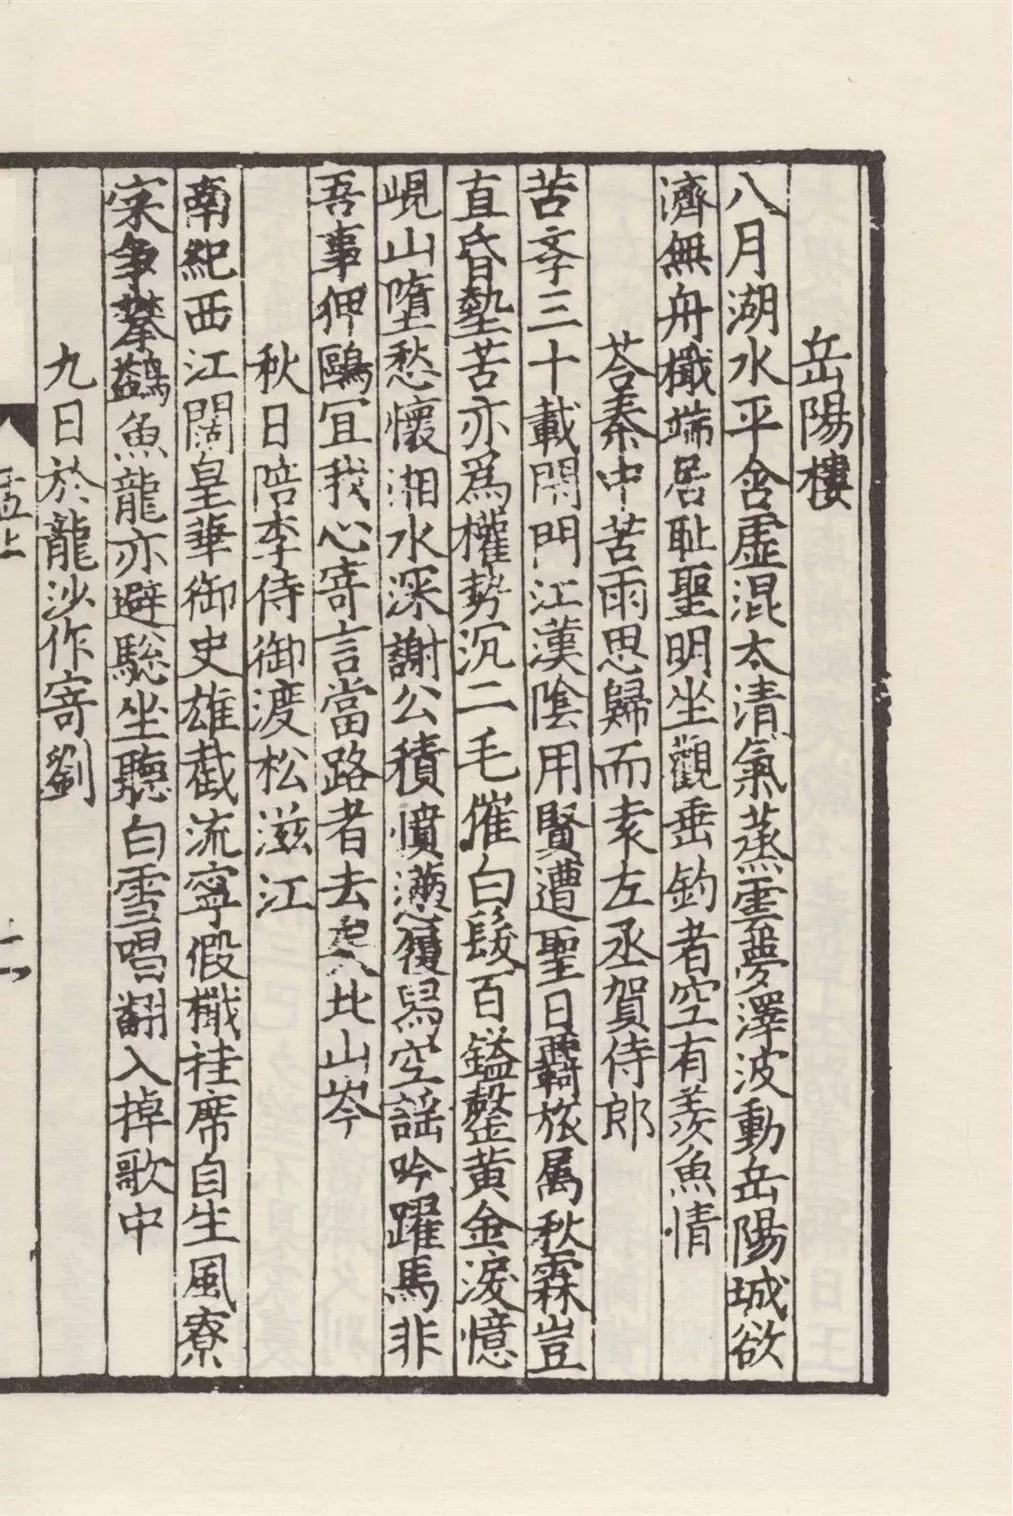 岳陽樓
八月湖水平含虛混太清氣蒸雲夢澤波動岳陽城欲
濟無舟檝端居耻聖明坐觀垂釣者空有羨魚情
荅秦中苦雨思歸而袁左丞賀侍郎
苦斈三十載閇門江漢隂用賢遭聖日羇旅属秋霖豈
直昏墊苦亦爲權勢沉二毛催白髮百鎰罄黄金淚憶
峴山墮愁懷湘水深謝公積憤懣莊舃空謡吟躍馬非
吾事狎鷗冝我心寄言當路者去矣北山岑
秋日陪李侍御渡松滋江
南紀西江闊皇華御史雄截流寧假檝挂席自生風寮
寀争攀鷁魚龍亦避驄坐聽白雪唱翻入棹歌中
九日於龍沙作寄劉
孟上